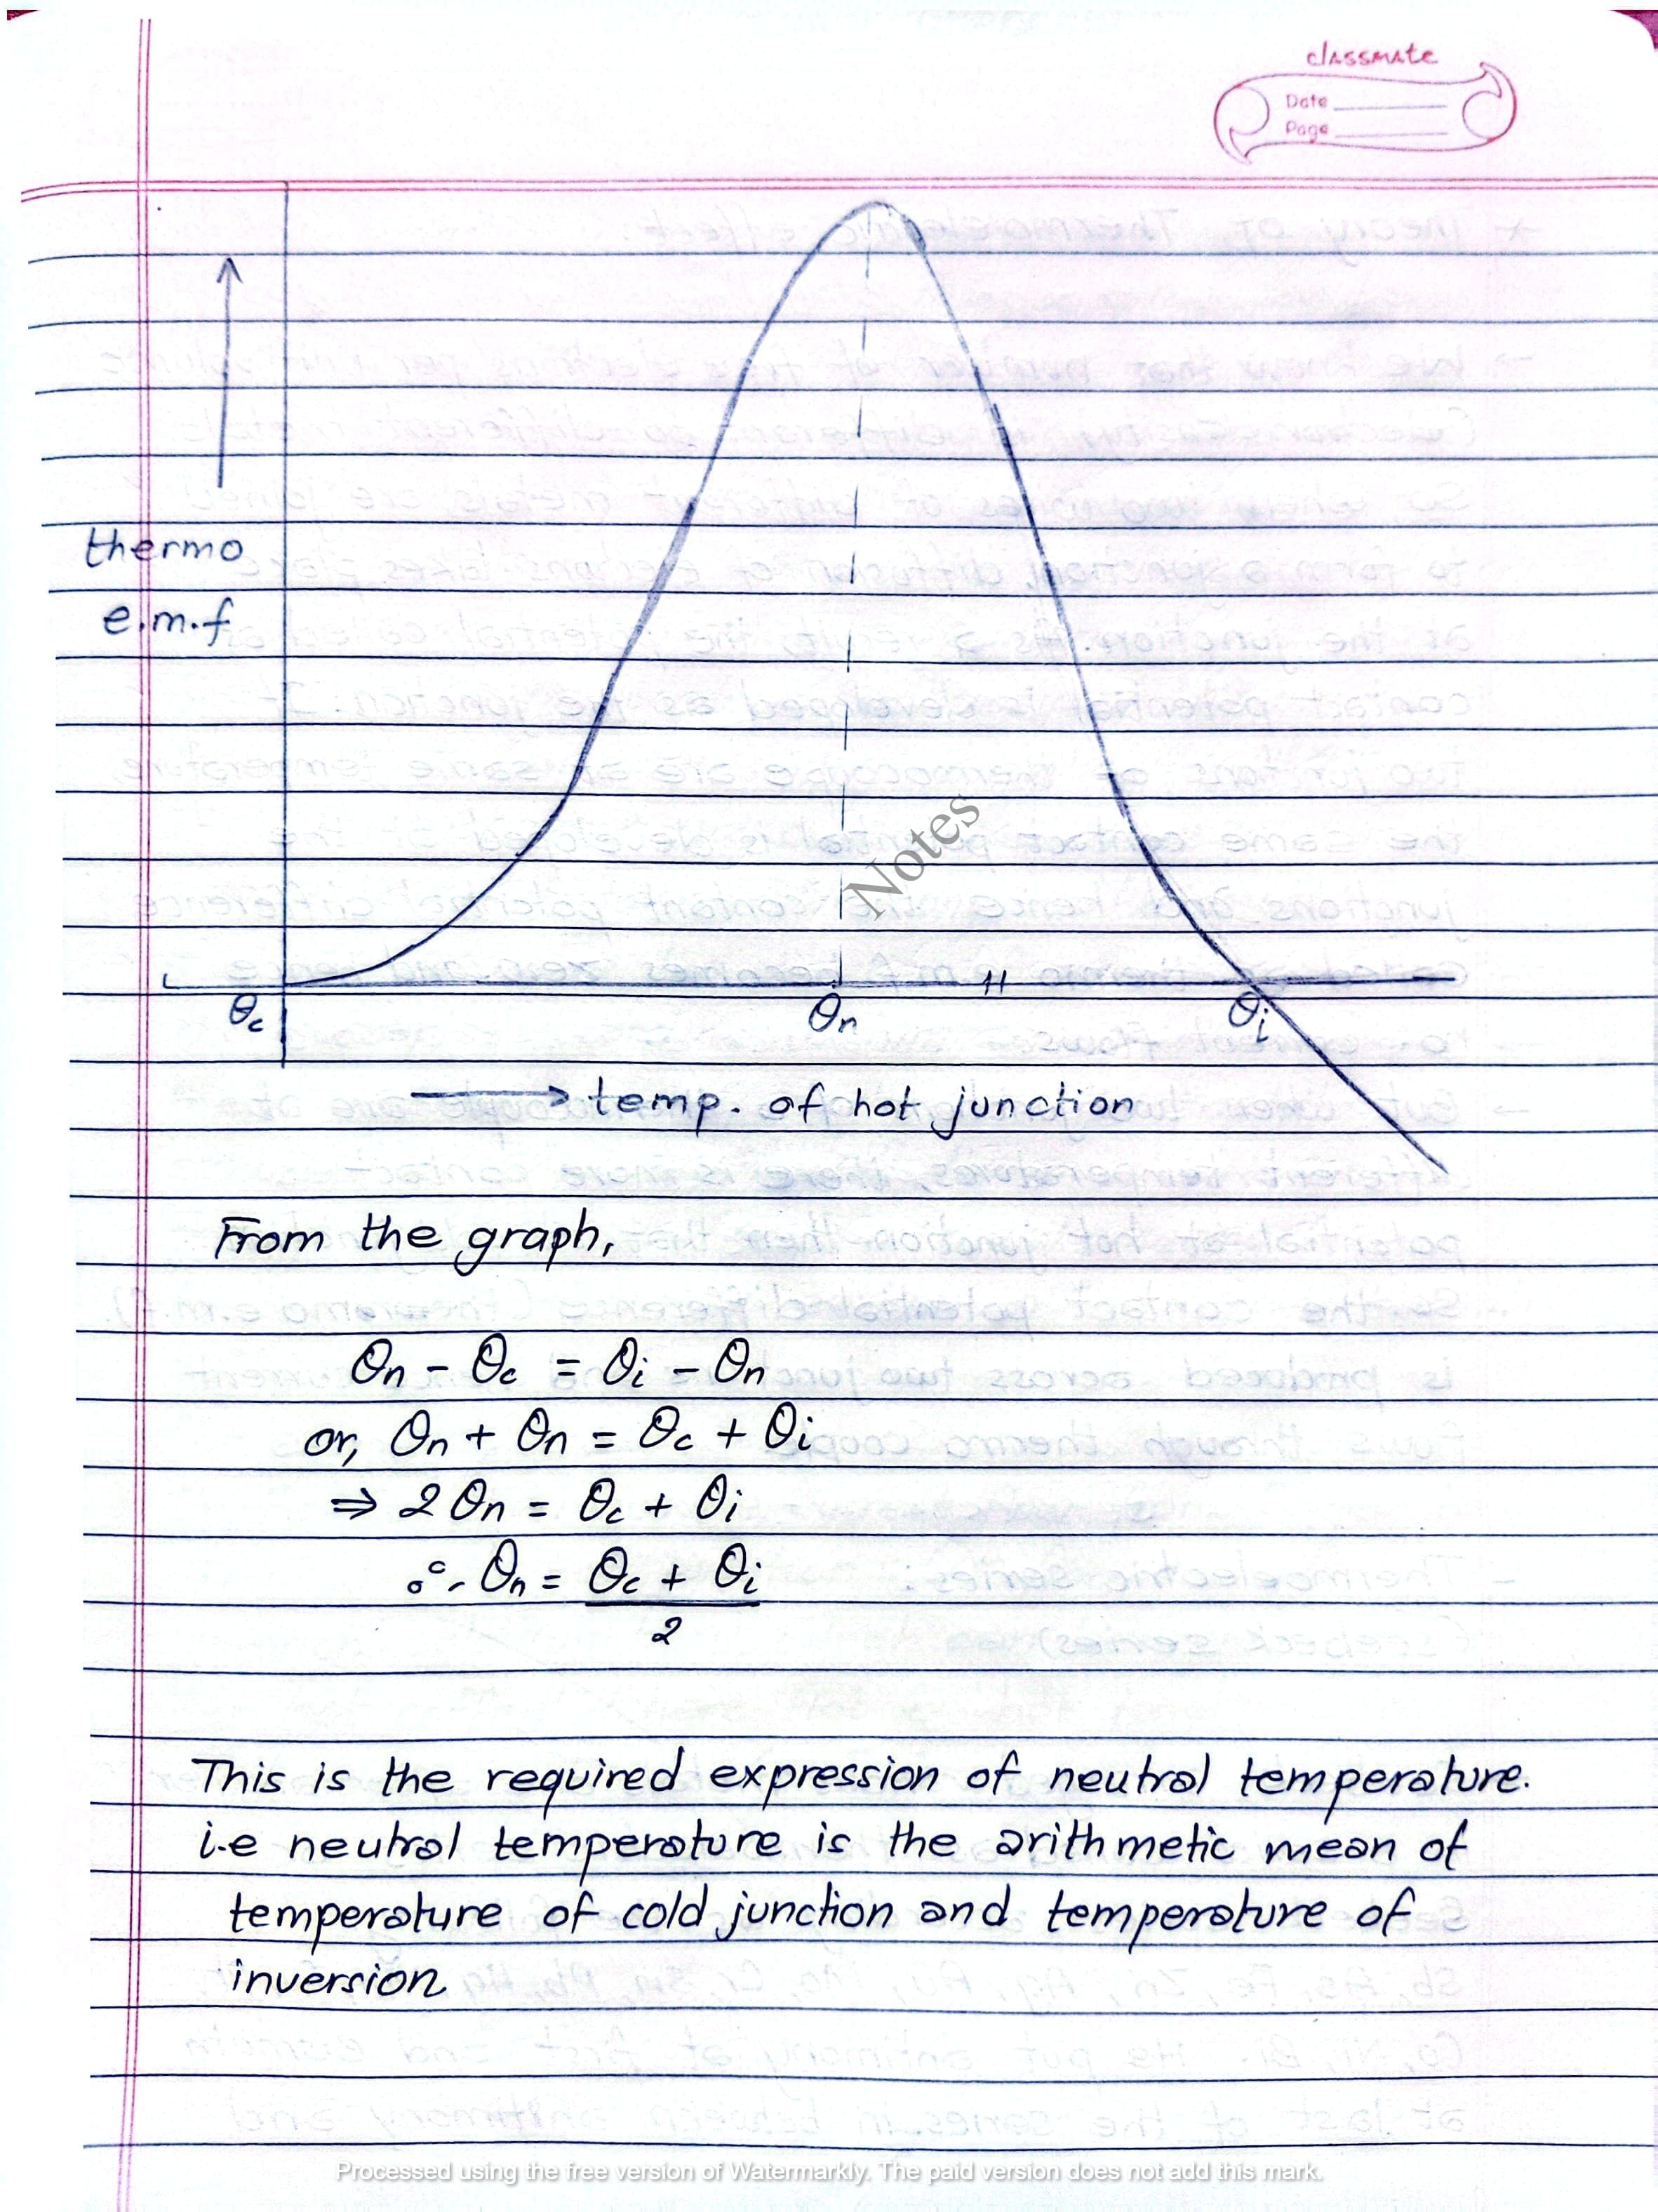 classmate
Date
Page
thermo
e.m.f
Notes
θc
θn
θi
→ temp. of hot junction
From the graph,
θn - θc = θi - θn
or, θn + θn = θc + θi
⇒ 2 θn = θc + θi
∴ θn = θc + θi
2
This is the required expression of neutral temperature.
i.e neutral temperature is the arithmetic mean of
temperature of cold junction and temperature of
inversion
Processed using the free version of Watermarkly. The paid version does not add this mark.